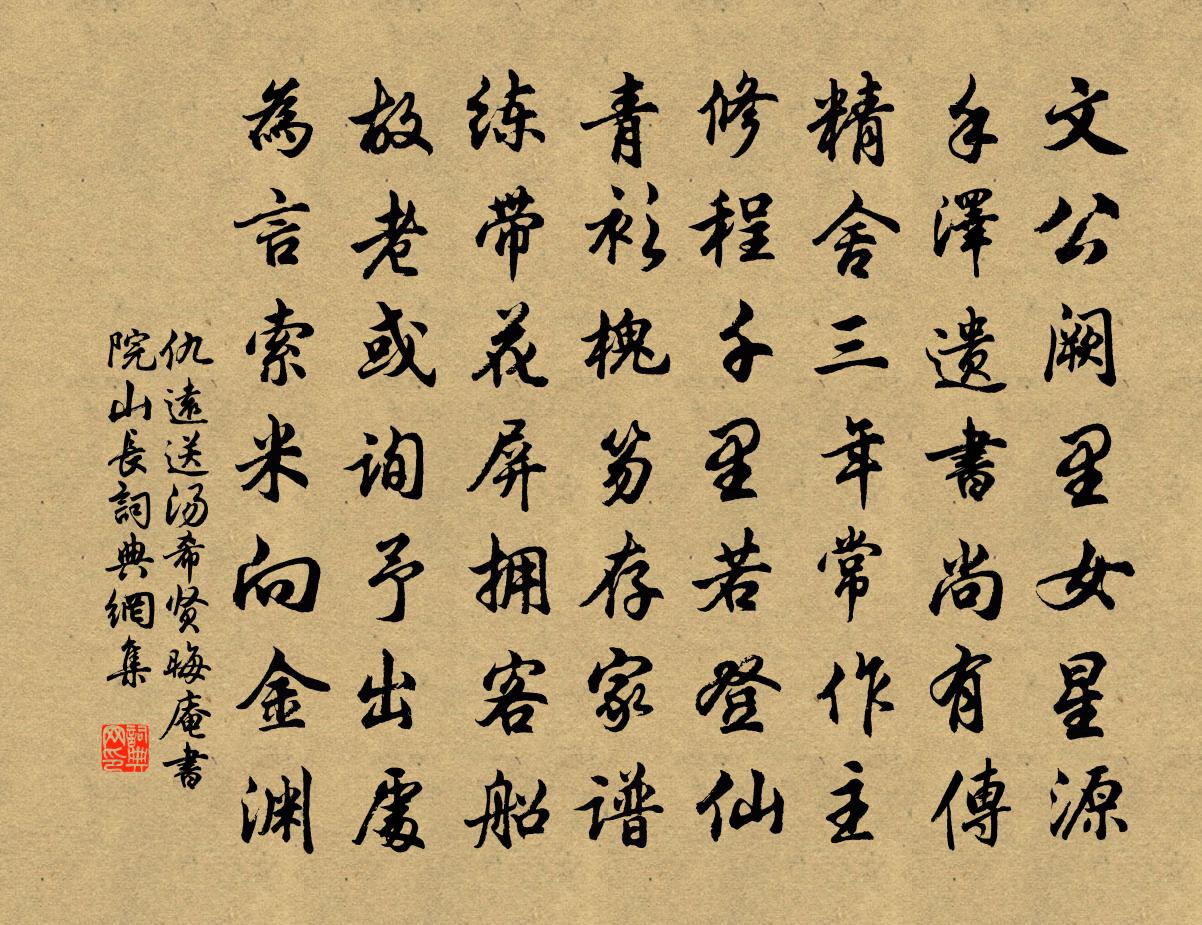 文公阙里女星源
手澤遗書尚有傳
精舍三年常作主
修程千里若登仙
青衫槐笏存家谱
练带花屏拥客船
故老或询予出處
為言索米向金渊
仇遠送汤希贤晦庵書
院山長詞典網集
詞典
网印